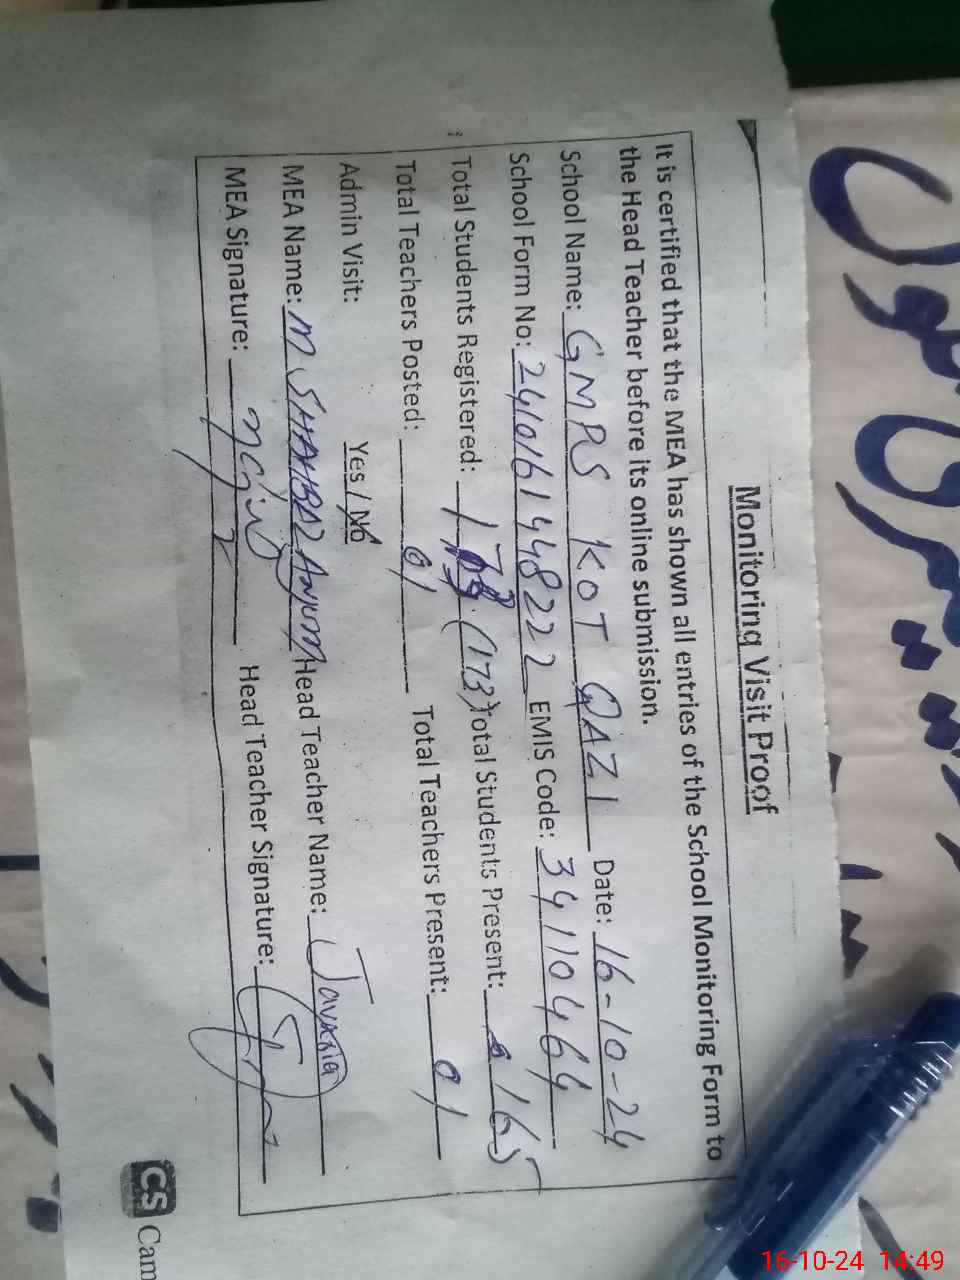 Monitoring Visit Proof
It is certified that the MEA has shown all entries of the School Monitoring Form to
the Head Teacher before its online submission.
School Name: GMPS KOT QAZI Date: 16-10-24
School Form No: 241016144822 EMIS Code: 34110464
Total Students Registered: (173) Total Students Present: 165
Total Teachers Posted: 01 Total Teachers Present: 01
Admin Visit: Yes / No
MEA Name: M SHAHBAZ Anjum Head Teacher Name: Javaria
MEA Signature: Head Teacher Signature:
CS Cam
16-10-24 14:49